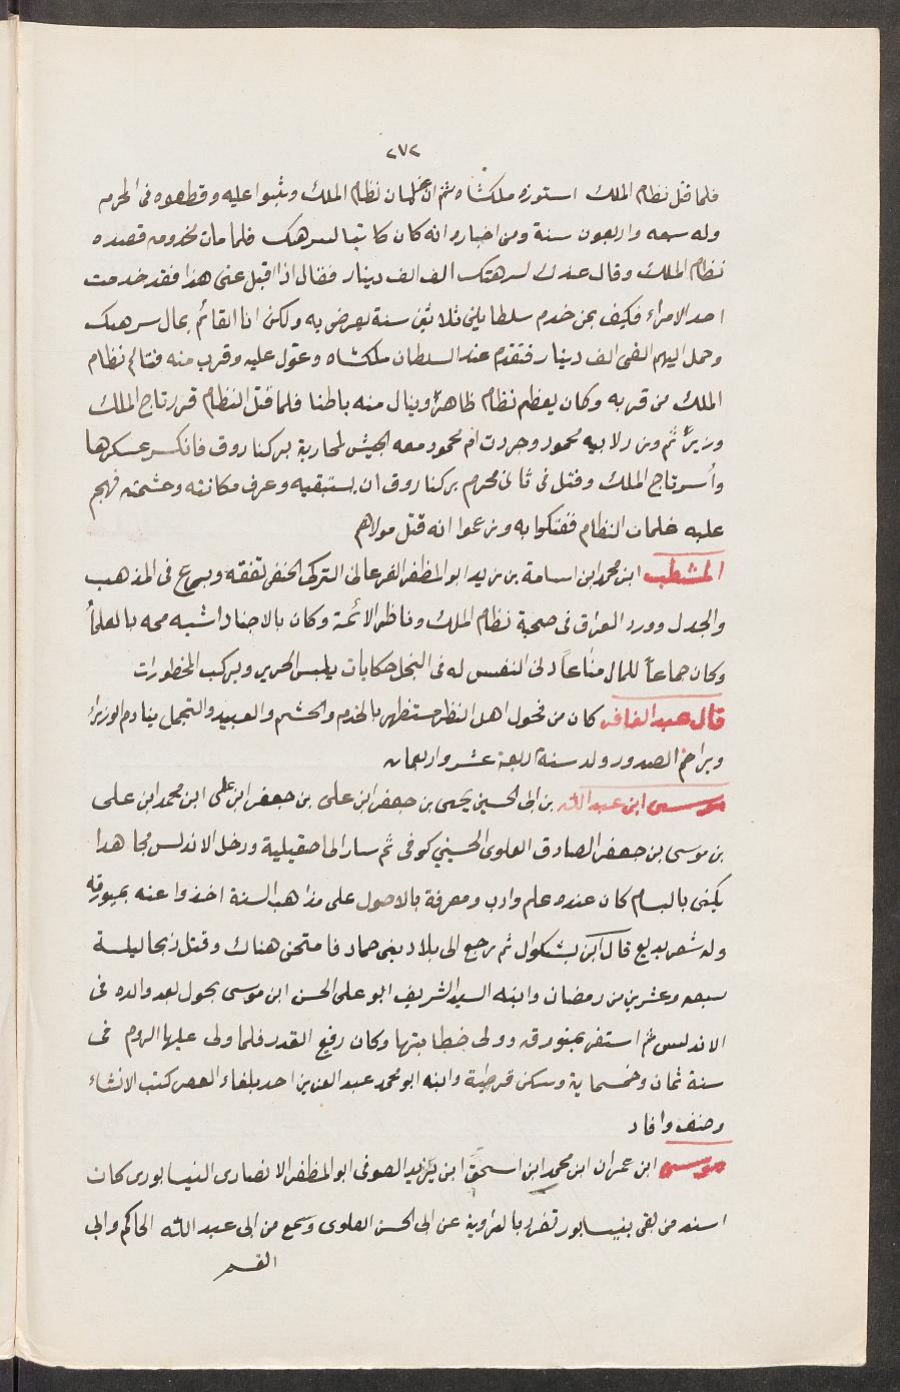 ٢٧٢
فلما قتل نظام الملك استوزه ملكشاه ثم ان غلمان نظام الملك وثبوا عليه وقطعوه فى المحرم
وله سبعه واربعون سنة ومن اخباره انه كان كاتبا لسرهنك فلما مات مخدومه قصده
نظام الملك وقال عندك لسرهتك الف الف دينار فقال اذا اقبل عنى هذا فقد خدمت
احد الامراء فكيف بمن خدم سلطانين ثلاثين سنة يعرض به ولكن انا القائم بمال سرهنك
وحمل اليهم الفى الف دينار فتقدم عند السلطان ملكشاه وعول عليه وقرب منه فتالم نظام
الملك من قربه وكان يعظم نظام ظاهرا وينال منه باطنا فلما قتل النظام قرر تاج الملك
وزيرا ثم وزر لابيه محمود وجردت ام محمود معه الجيش لمحاربة بركناروق فانكسر عسكرها
وأسر تاج الملك وقتل فى ثانى محرم بركناروق ان يستبقيه وعرف مكانته وحشمته فهجم
عليه غلمان النظام ففتكوا به وزعموا انه قتل مولاهم
المشطب ابن محمد ابن اسامة بن زيد ابو المظفر الفرغانى التركى الحنفى تفقه وبرع فى المذهب
والجدل وورد العراق فى صحبة نظام الملك وناظر الائمة وكان بالاجناد اشبه محه بالعلمأ
وكان جماعاً للمال مناعاً دنى النفس له فى البخل حكايات يلبس الحرير ويركب المحظورات
قال عبد الغافر كان من فحول اهل النظر مستظهر بالخدم والحشم والعبيد والتجمل ينادم الوزراء
ويراحم الصدور ولد سنة اربعة عشر واربعمايه
موسى ابن عبد الله بن ابى الحسين يحيى بن جعفر ابن على بن جعفر ابن على ابن محمد ابن على
بن موسى بن جعفر الصادق العلوى الحسينى كوفى ثم سار الى صقيلية ودخل الاندلس مجاهدا
يكنى بالبسام كان عنده علم وادب ومعرفة بالاصول على مذاهب السنة اخذوا عنه بميورقه
وله شعر بديع قال ابن بشكوال ثم رجع الى بلاد بنى حماد فامتحن هناك وقتل ذبحا ليلة
سبعه وعشرين من رمضان وابنه السيد الشريف ابو على الحسن ابن موسى يجول بعد والده فى
الاندلس ثم استقر بمنورقه وولى خطابتها وكان رفيع القدر فلما ولى عليها الروم فى
سنة ثمان وخمسماية وسكن قرطبة وابنه ابو محمد عبد العزيز احد بلغاء العصر كتب الانشاء
وصنف وافاد
موسى ابن عمران ابن محمد ابن اسحق ابن يزيد الصوفى ابو المظفر الانصارى النيسابورى كان
اسند من بقى بنيسابور تفرد بالرواية عن ابى الحسن العلوى وسمع من ابى عبد الله الحاكم وابى
القسم